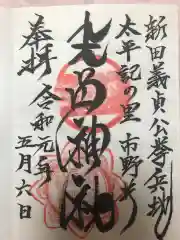 新田義貞公挙兵地
太平記の里 市野井
生品神社
奉拝
令和元年
五月六日